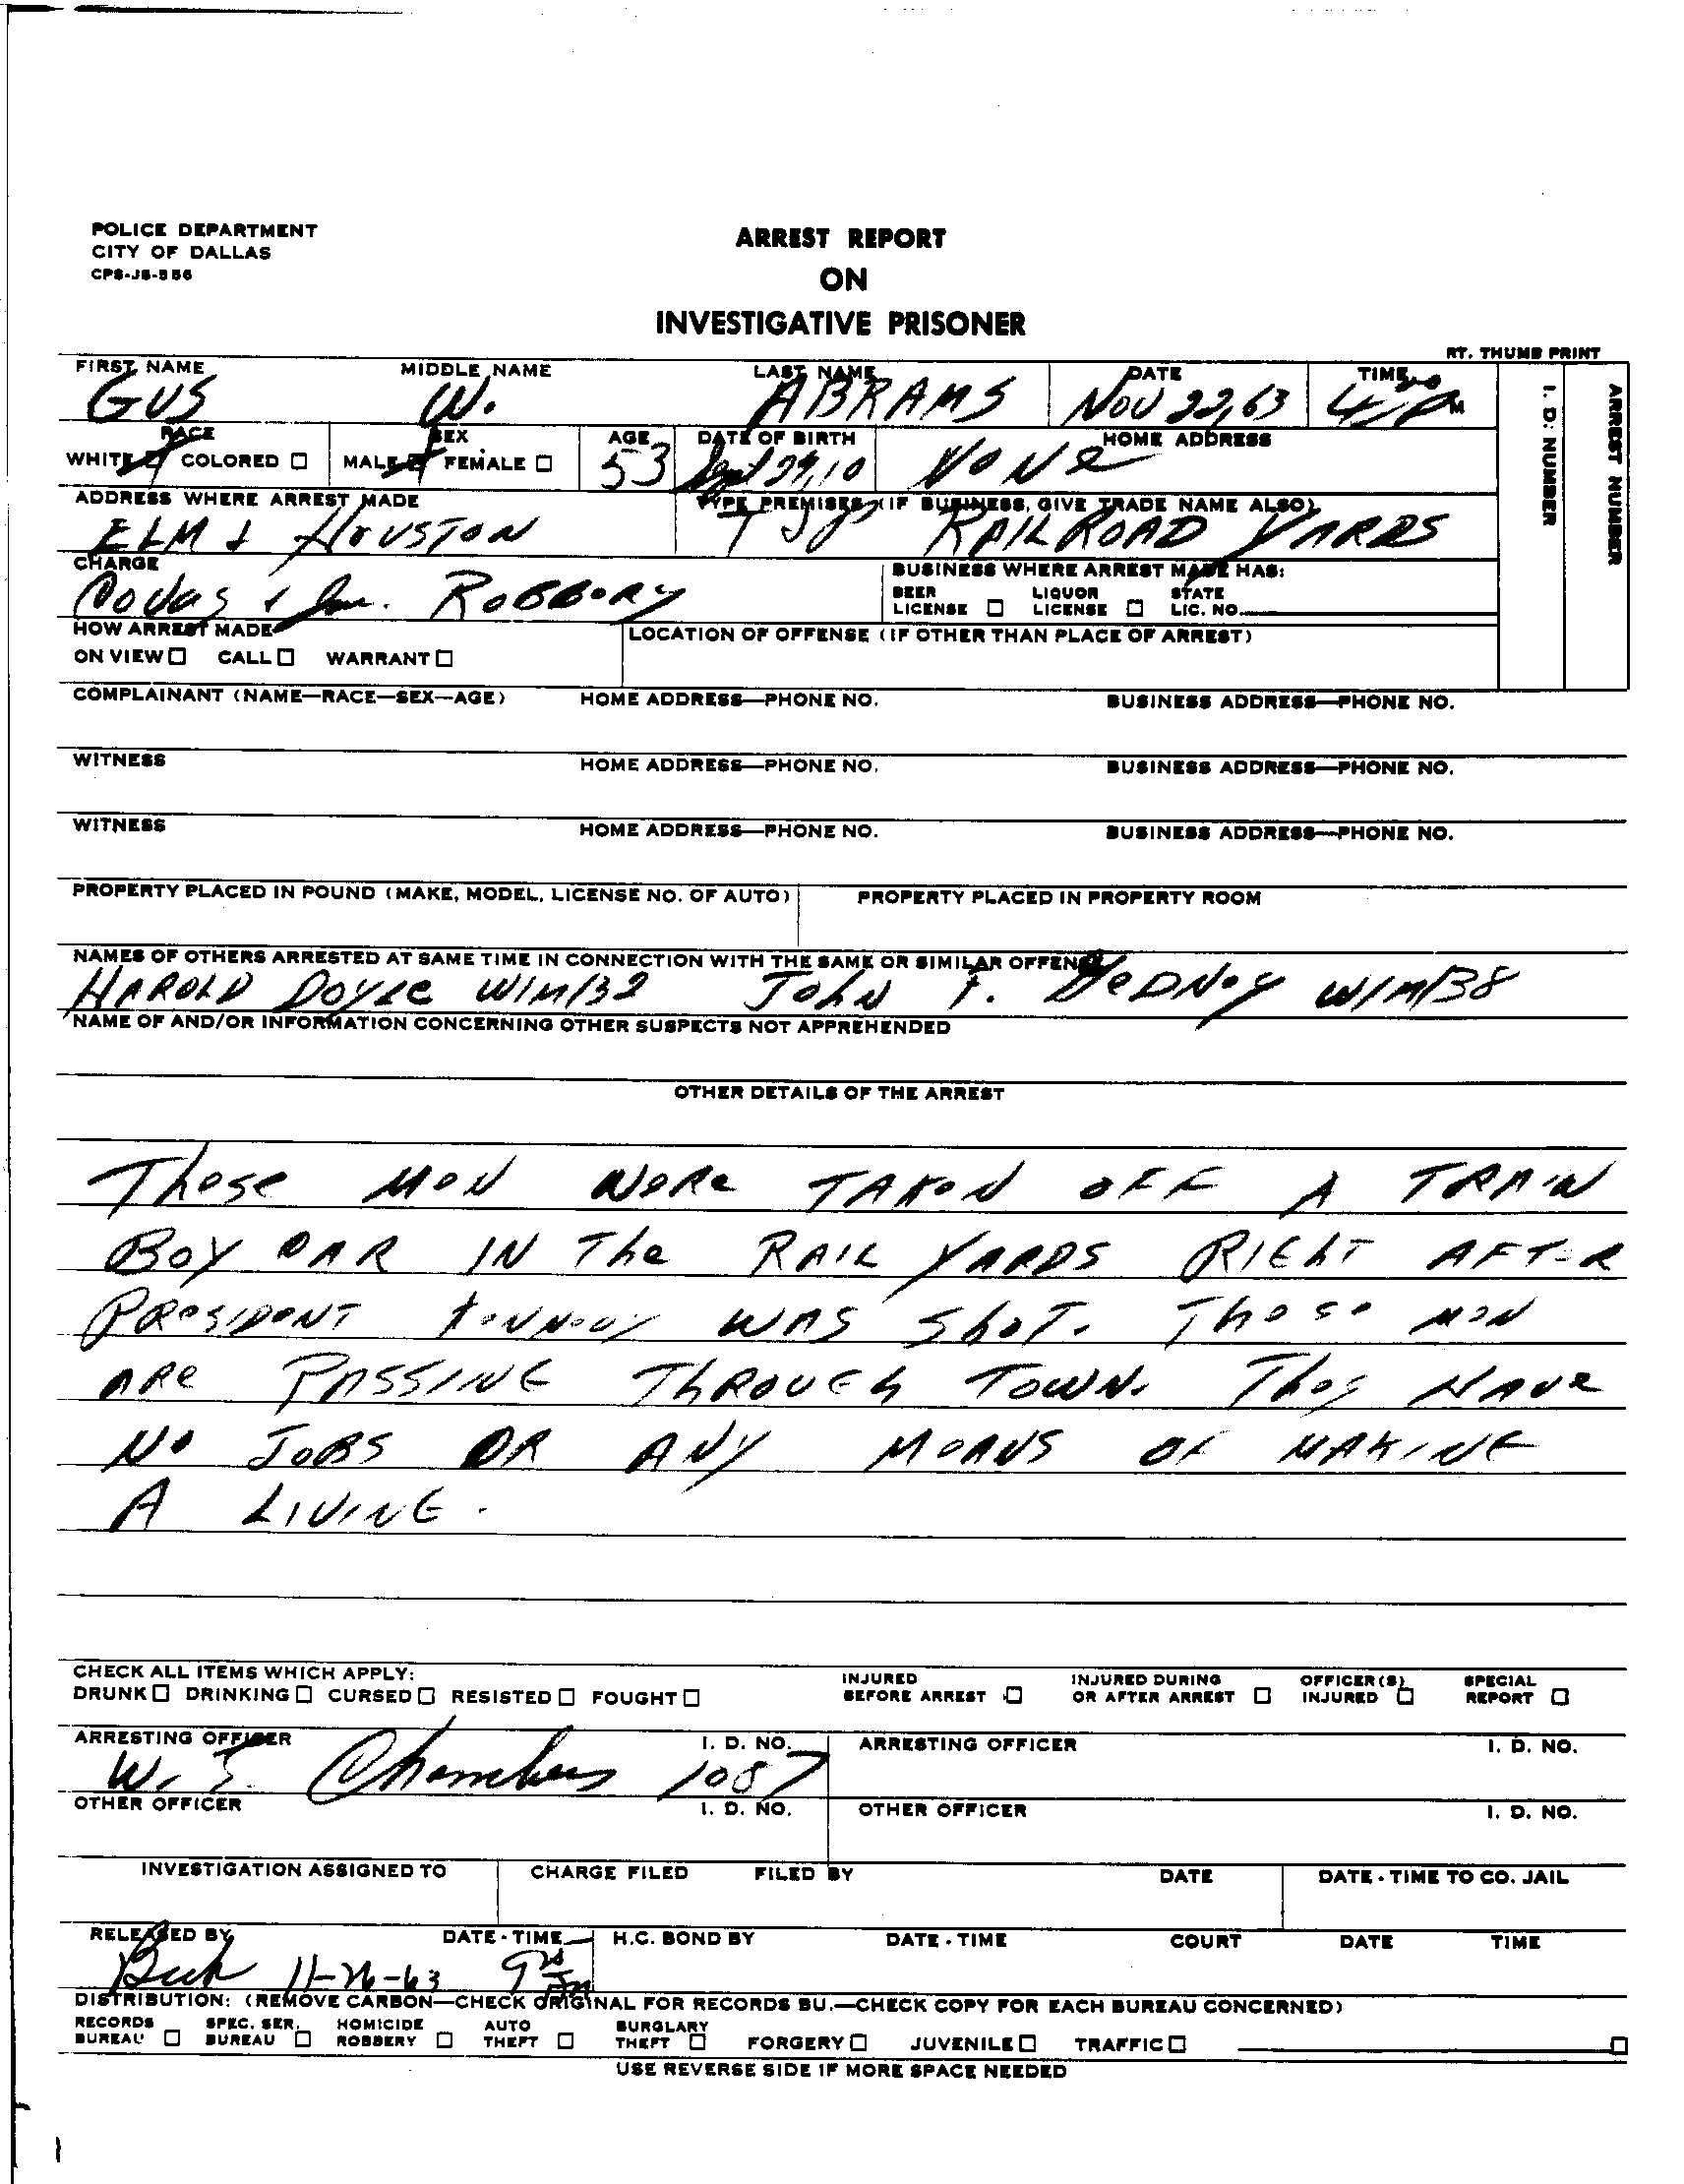 POLICE DEPARTMENT
CITY OF DALLAS
ARREST REPORT
ON
INVESTIGATIVE PRISONER
RT. THUMB PRINT
FIRST NAME MIDDLE NAME LAST NAME DATE TIME
GUS W. ABRAMS NOV 22, 63 PM
I. D. NUMBER
ARREST NUMBER
RACE SEX AGE DATE OF BIRTH HOME ADDRESS
WHITE COLORED MALE FEMALE 53 Sept 29, 10 NONe
ADDRESS WHERE ARREST MADE TYPE PREMISES (IF BUSINESS, GIVE TRADE NAME ALSO)
ELM & HOUSTON RAILROAD YARDS
CHARGE BUSINESS WHERE ARREST MADE HAS:
ROBBORY
BEER LIQUOR STATE
LICENSE LICENSE LIC. NO.
HOW ARREST MADE LOCATION OF OFFENSE (IF OTHER THAN PLACE OF ARREST)
ON VIEW CALL WARRANT
COMPLAINANT (NAME—RACE—SEX—AGE) HOME ADDRESS—PHONE NO. BUSINESS ADDRESS—PHONE NO.
WITNESS HOME ADDRESS—PHONE NO. BUSINESS ADDRESS—PHONE NO.
WITNESS HOME ADDRESS—PHONE NO. BUSINESS ADDRESS—PHONE NO.
PROPERTY PLACED IN POUND (MAKE, MODEL, LICENSE NO. OF AUTO) PROPERTY PLACED IN PROPERTY ROOM
NAMES OF OTHERS ARRESTED AT SAME TIME IN CONNECTION WITH THE SAME OR SIMILAR OFFENSE
HAROLD DOYLe W/M/32 JOhN F. GeDNeY W/M/38
NAME OF AND/OR INFORMATION CONCERNING OTHER SUSPECTS NOT APPREHENDED
OTHER DETAILS OF THE ARREST
These MeN WeRe TAKeN OFF A TRAIN
BOX CAR IN The RAIL YARDS RIGhT AFTeR
PReSIDeNT KeNNeDY WAS ShOT. These MeN
ARe PASSING ThROUGh TOWN. They HAVe
NO JOBS OR ANY MeANS OF MAKING
A LIVING.
CHECK ALL ITEMS WHICH APPLY:
DRUNK DRINKING CURSED RESISTED FOUGHT
INJURED BEFORE ARREST INJURED DURING OR AFTER ARREST OFFICER(S) INJURED SPECIAL REPORT
ARRESTING OFFICER I. D. NO. ARRESTING OFFICER I. D. NO.
W. E. Chambers 1087
OTHER OFFICER I. D. NO. OTHER OFFICER I. D. NO.
INVESTIGATION ASSIGNED TO CHARGE FILED FILED BY DATE DATE - TIME TO CO. JAIL
RELEASED BY DATE - TIME H.C. BOND BY DATE - TIME COURT DATE TIME
Beck 11-26-63
DISTRIBUTION: (REMOVE CARBON—CHECK ORIGINAL FOR RECORDS BU.—CHECK COPY FOR EACH BUREAU CONCERNED)
RECORDS BUREAU SPEC. SER. BUREAU HOMICIDE ROBBERY AUTO THEFT BURGLARY THEFT FORGERY JUVENILE TRAFFIC
USE REVERSE SIDE IF MORE SPACE NEEDED